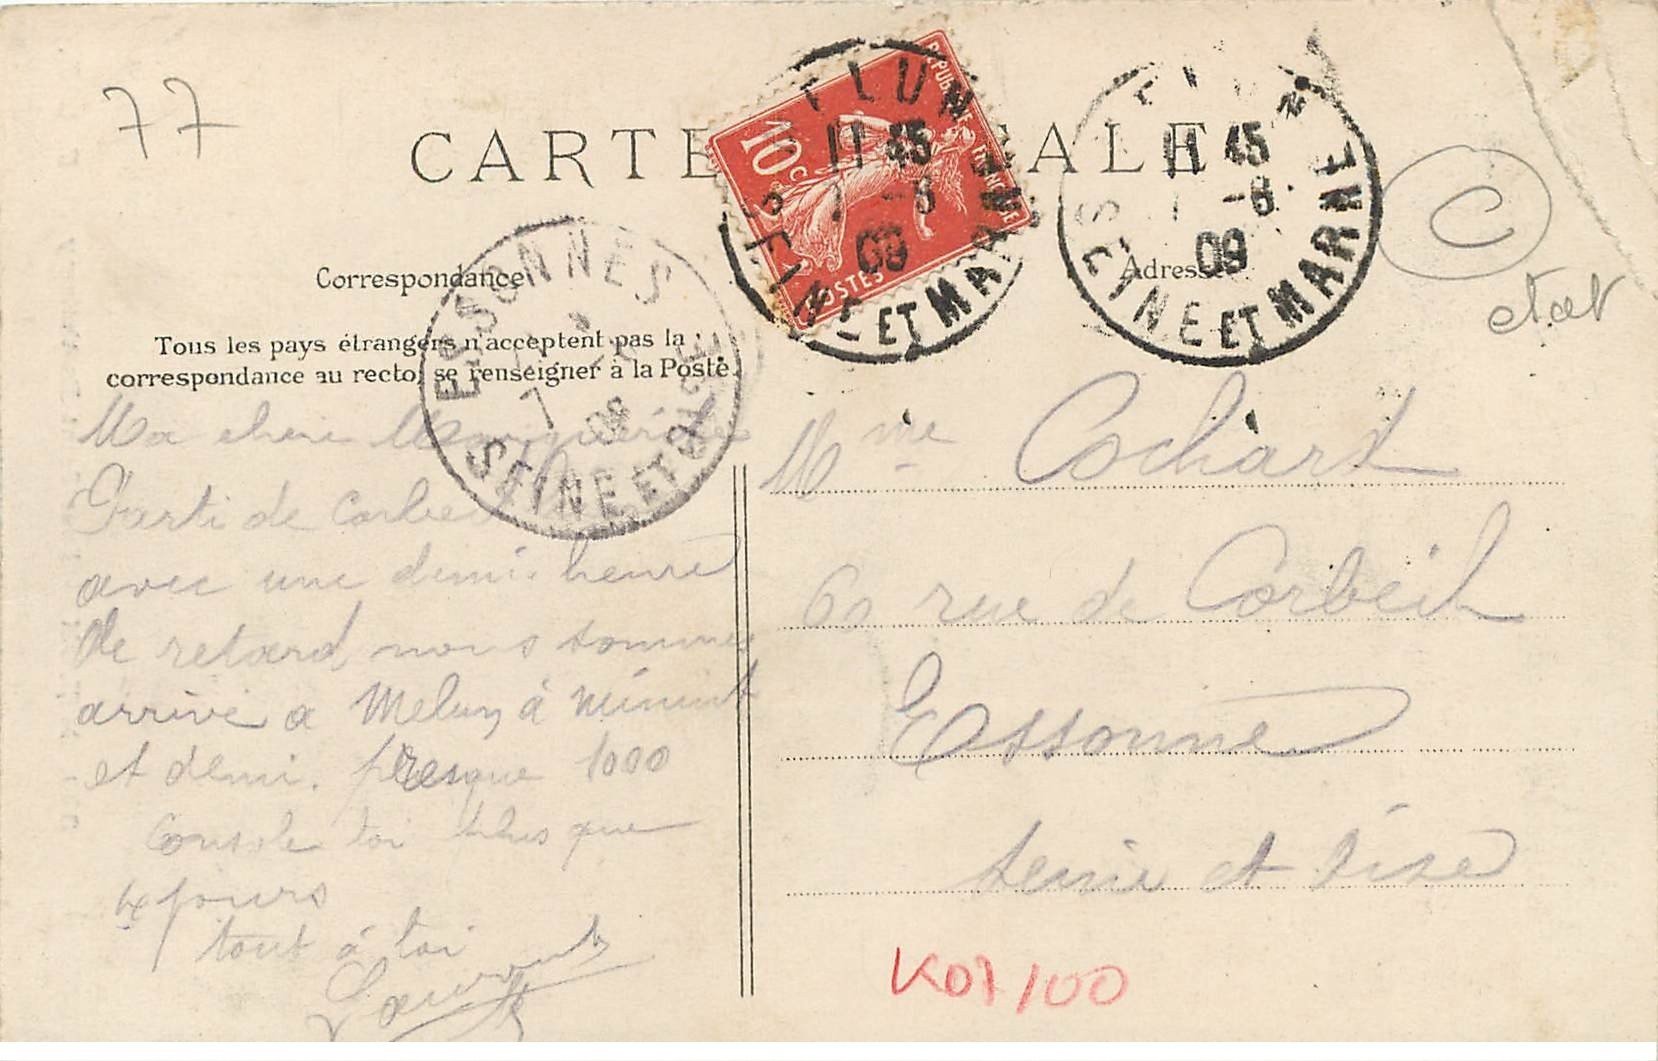 77
CARTE POSTALE
MELUN
11 45
7 -8
09
SEINE ET MARNE
RÉPUBLIQUE FRANÇAISE
10c
POSTES
11 45
-8
09
SEINE ET MARNE
C
etat
Correspondance
Adresse
ESSONNES
7
09
SEINE ET OISE
Tous les pays étrangers n'acceptent pas la
correspondance au recto, se renseigner à la Poste.
Ma chere Marguerite
Parti de Corbeil
avec une demi heure
de retard, nous sommes
arrivé a Melun à minuit
et demi. presque 1000
Console toi plus que
4 jours
tout à toi
Laurent
Mme Cochart
60 rue de Corbeil
Essonne
Seine et Oise
K07/100